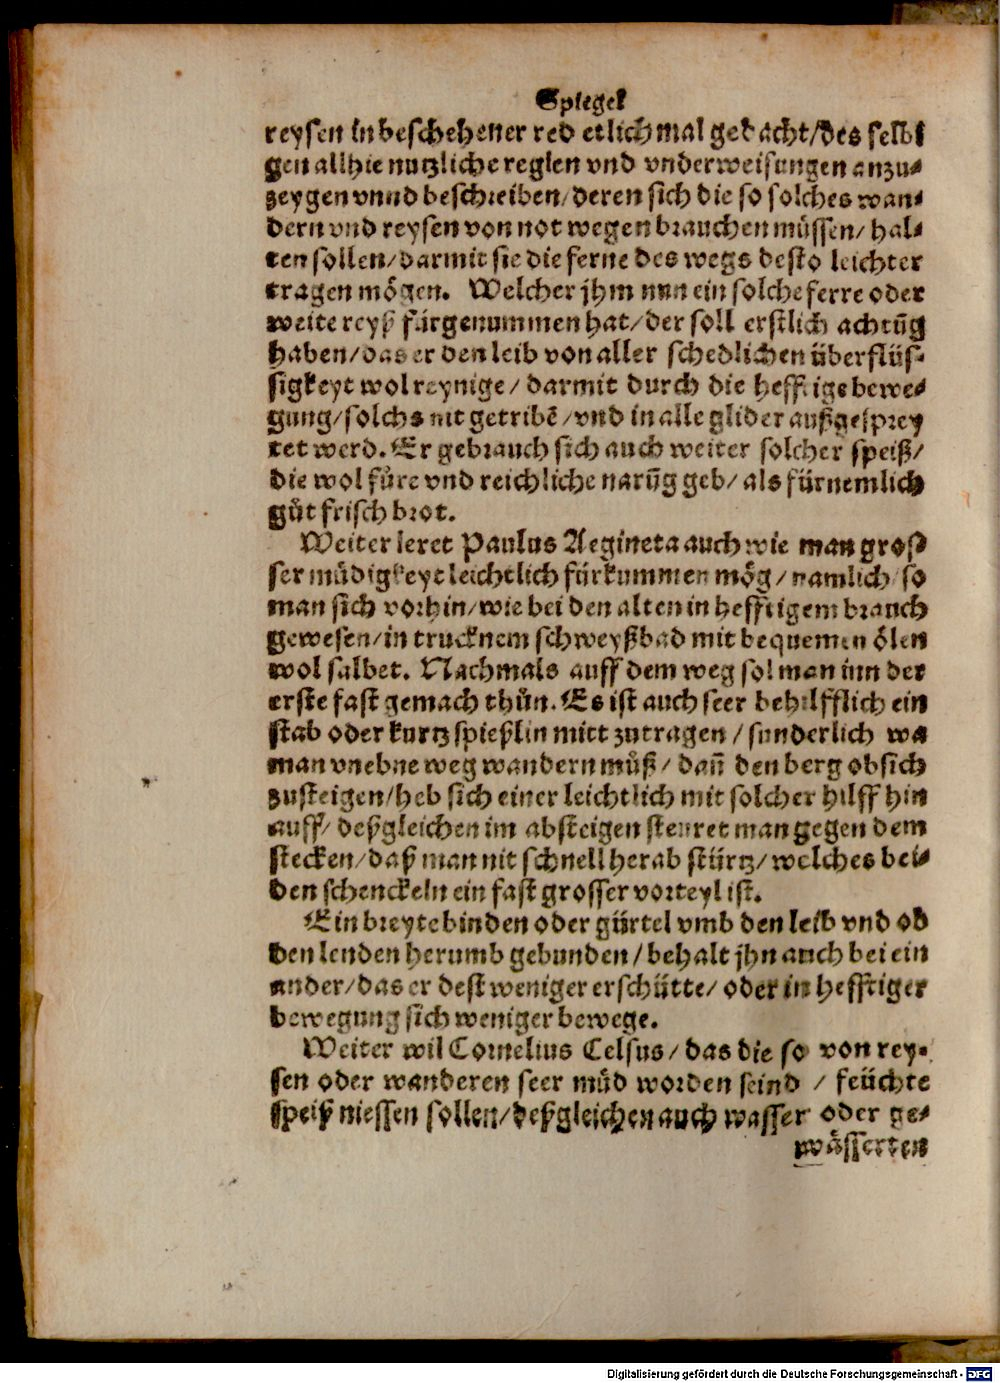 Spiegel
reysen in beschehener red etlich mal gedacht/des selbi
gen allhie nutzliche reglen vnd vnderweisungen anzu-
zeygen vnnd beschreiben/deren sich die so solches wan-
dern vnd reysen von not wegen brauchen müssen/hal-
ten sollen/darmit sie die ferne des wegs desto leichter
tragen mögen. Welcher jhm nun ein solche ferre oder
weite reyß fürgenummen hat/der soll erstlich achtūg
haben/das er den leib von aller schedlichen überflüs-
sigkeyt wol reynige/darmit durch die hefftige bewe-
gung/solchs nit getribē/vnd in alle glider außgesprey
tet werd. Er gebrauch sich auch weiter solcher speiß/
die wol fůre vnd reichliche narūg geb/als fürnemlich
gůt frisch brot.
Weiter leret Paulus Aegineta auch wie man gros-
ser müdigkeyt leichtlich fürkummen mög/namlich/so
man sich vorhin/wie bei den alten in hefftigem brauch
gewesen/in trucknem schweyßbad mit bequemen ölen
wol salbet. Nachmals auff dem weg sol man inn der
erste fast gemach thůn. Es ist auch seer behilfflich ein
stab oder kurtz spießlin mitt zutragen/sunderlich wa
man vnebne weg wandern můß/dañ den berg obsich
zusteigen/heb sich einer leichtlich mit solcher hilff hin
auff/deßgleichen im absteigen steuret man gegen dem
stecken/daß man nit schnell herab stürtz/welches bei-
den schenckeln ein fast grosser vorteyl ist.
Ein breyte binden oder gürtel vmb den leib vnd ob
den lenden herumb gebunden/behalt jhn auch bei ein
ander/das er dest weniger erschütte/oder in hefftiger
bewegung sich weniger bewege.
Weiter wil Cornelius Celsus/das die so von rey-
sen oder wanderen seer müd worden seind/feüchte
speiß niessen sollen/deßgleichen auch wasser oder ge-
wässerten
Digitalisierung gefördert durch die Deutsche Forschungsgemeinschaft - DFG